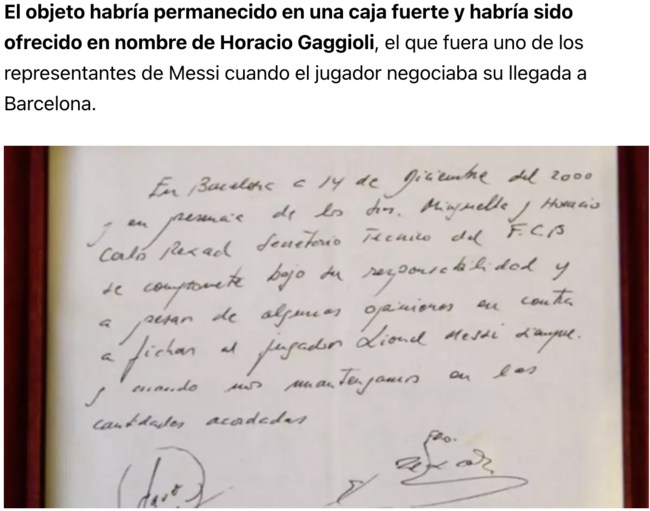 El objeto habría permanecido en una caja fuerte y habría sido
ofrecido en nombre de Horacio Gaggioli, el que fuera uno de los
representantes de Messi cuando el jugador negociaba su llegada a
Barcelona.
En Barcelona a 14 de Diciembre del 2000
y en presencia de los Srs. Minguella y Horacio
Carlos Rexach Secretario Técnico del F.C.B
se compromete bajo su responsabilidad y
a pesar de algunas opiniones en contra
a fichar al jugador Lionel Messi siempre
y cuando nos mantengamos en las
cantidades acordadas